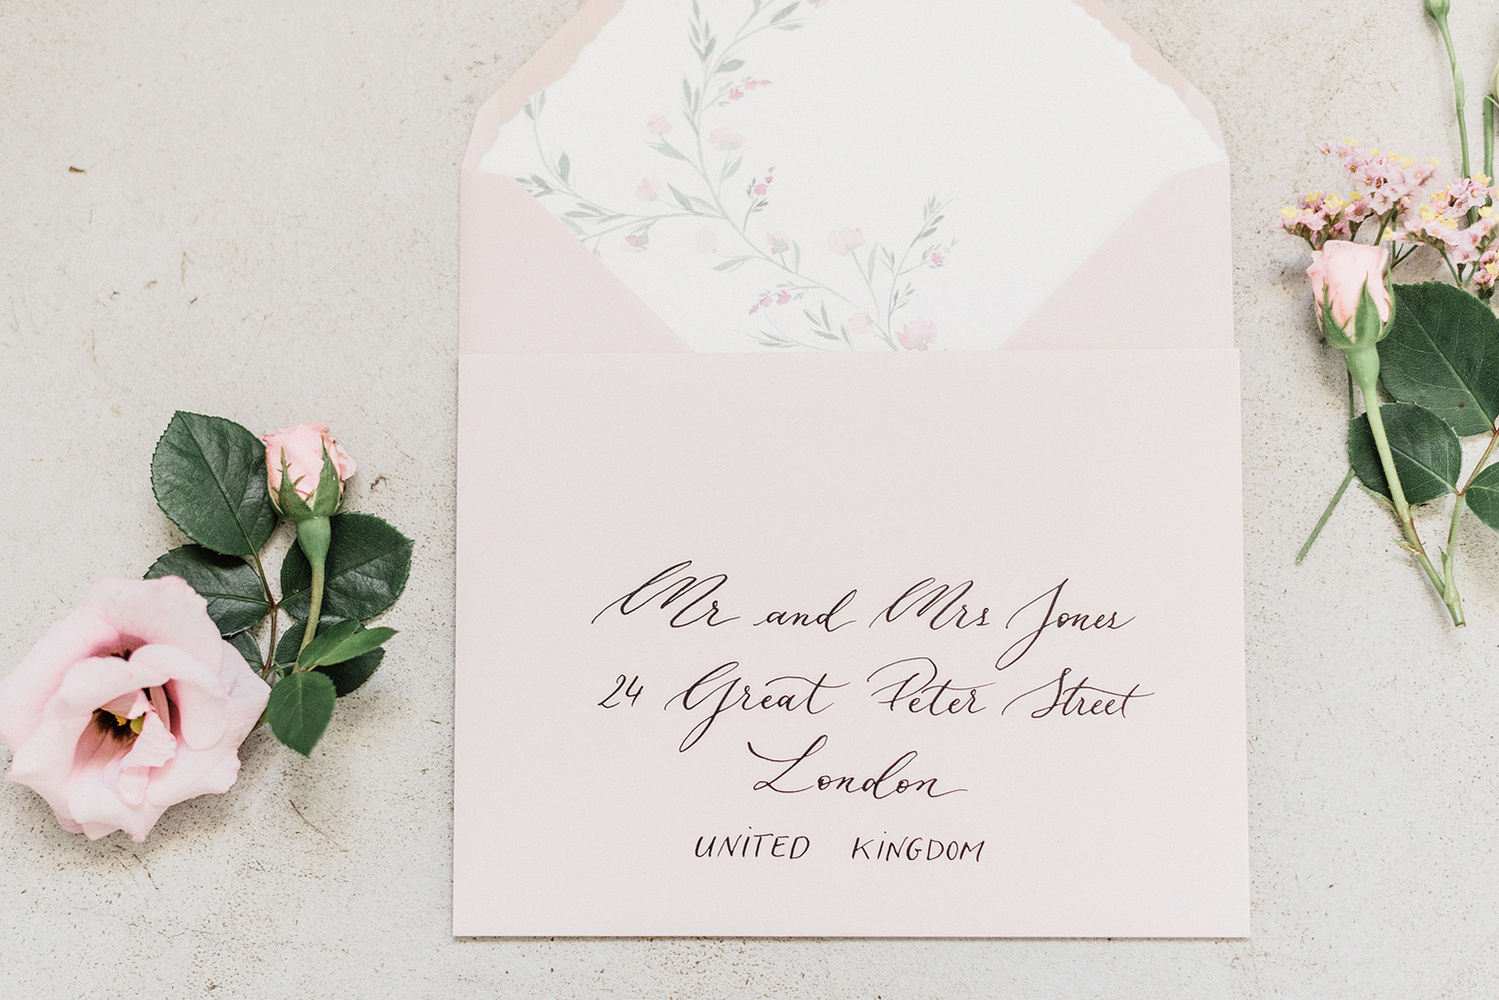 Mr and Mrs Jones
24 Great Peter Street
London
UNITED KINGDOM